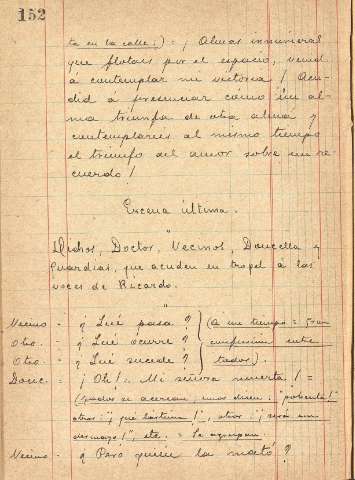 152
ta en la calle.) = ¡Almas inmineral
que flotais por el espacio, venid
á contemplar mi victoria! Acu-
did á presenciar cómo un al-
ma triunfa de otra alma y
contemplareis al mismo tiempo
el triunfo del amor sobre un re-
cuerdo!
Escena última.
"
Dichos, Doctor, Vecinos, Doncella y
Guardias, que acuden en tropel á las
voces de Ricardo.
"
Vecino - ¿Qué pasa? (A un tiempo = Gran
Otro. - ¿Qué ocurre? confusión entre
Otro. - ¿Qué sucede? todos).
Donc. - ¡Oh!.. Mi señora muerta! =
(Todos se acercan, unos dicen "pobrecita!"
otros: "¡que lástima!", otros "¡será un
desmayo!", etc. = Se agrupan.
Vecino - ¿Pero quién la mató?